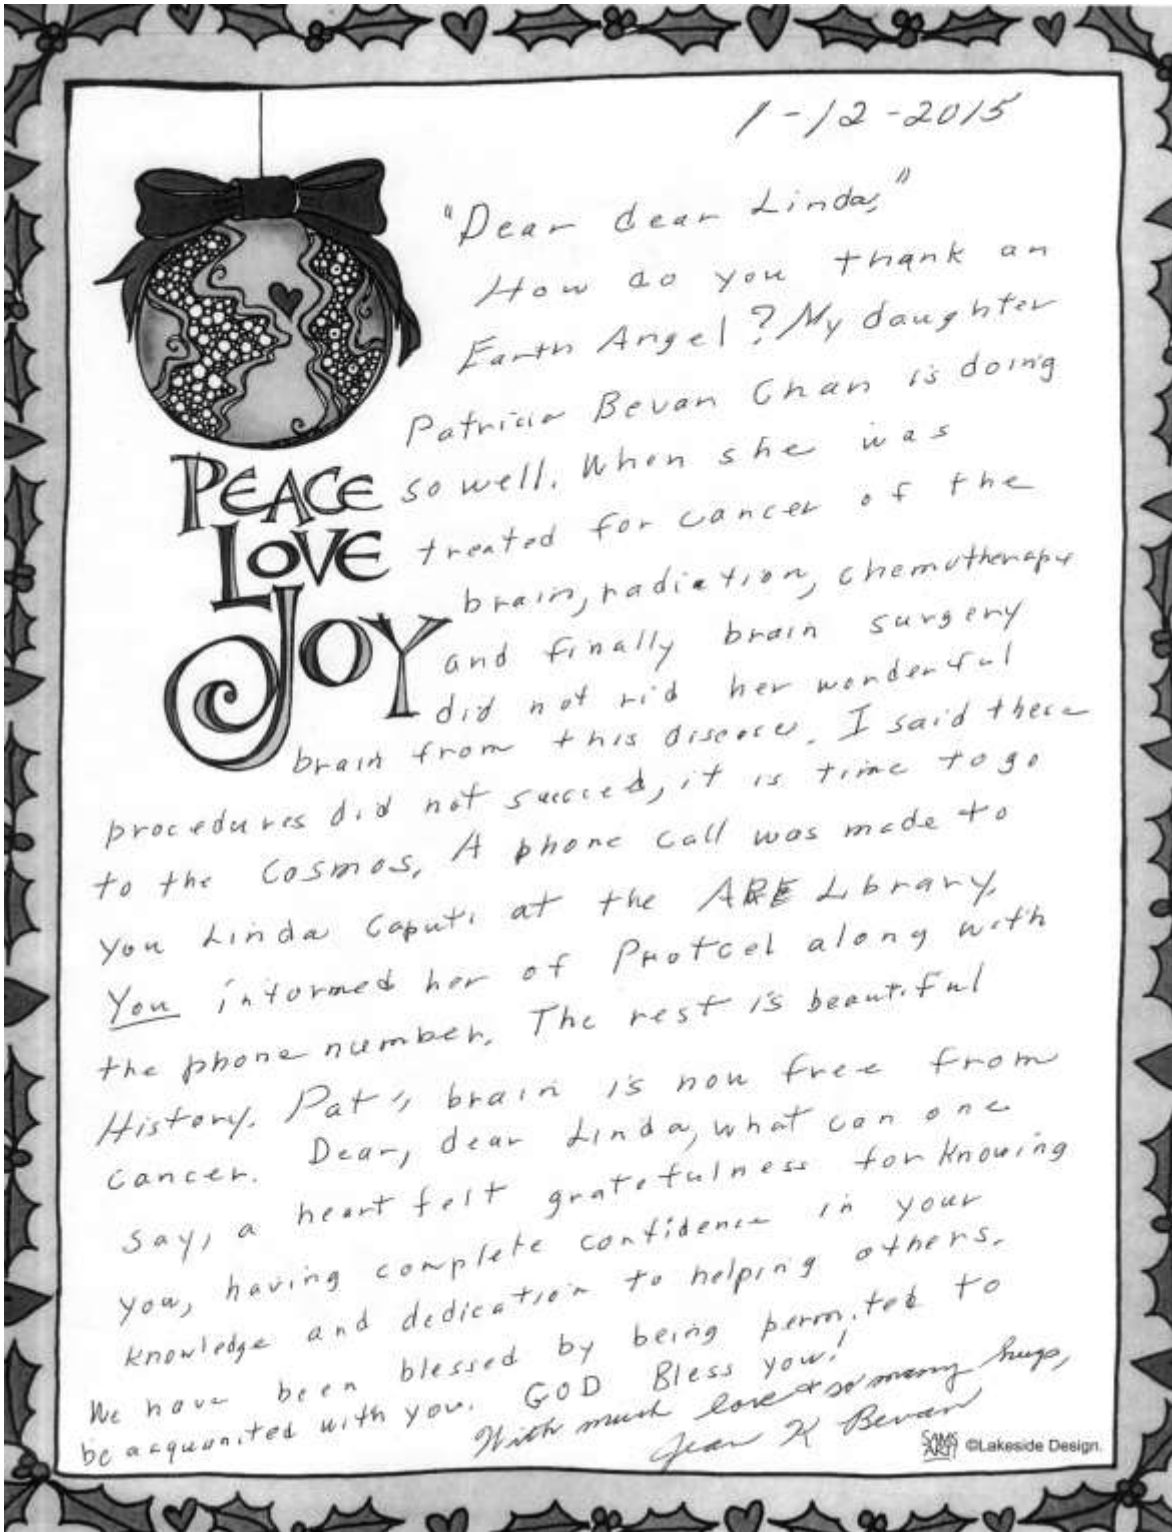 1-12-2015
"Dear dear Linda,"
How do you thank an
Earth Angel? My daughter
Patricia Bevan Chan is doing
so well. When she was
treated for cancer of the
brain, radiation, chemotherapy
and finally brain surgery
did not rid her wonderful
brain from this disease. I said these
procedures did not succeed, it is time to go
to the Cosmos. A phone call was made to
you Linda Caputi at the ARE Library.
You informed her of Protcel along with
the phone number. The rest is beautiful
History. Pat's brain is now free from
cancer. Dear, dear Linda, what can one
say, a heart felt gratefulness for knowing
you, having complete confidence in your
knowledge and dedication to helping others.
We have been blessed by being permited to
be acquanited with you. GOD Bless you!
With much love & so many hugs,
Jean K Bevan
PEACE
LOVE
JOY
SAMS
ART
©Lakeside Design.